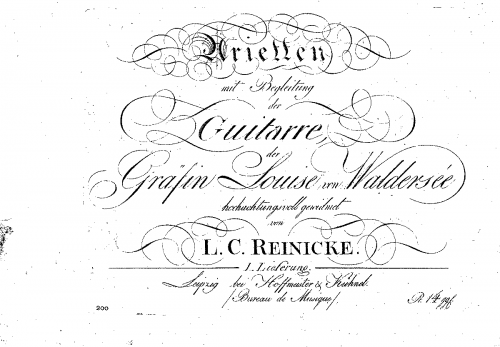 Arietten
mit Begleitung
der
Guitarre,
der
Gräfin Louise von Waldersée
hochachtungsvoll gewidmet
von
L. C. REINICKE.
1. Lieferung.
Leipzig bei Hoffmeister & Kühnel.
(Bureau de Musique)
200